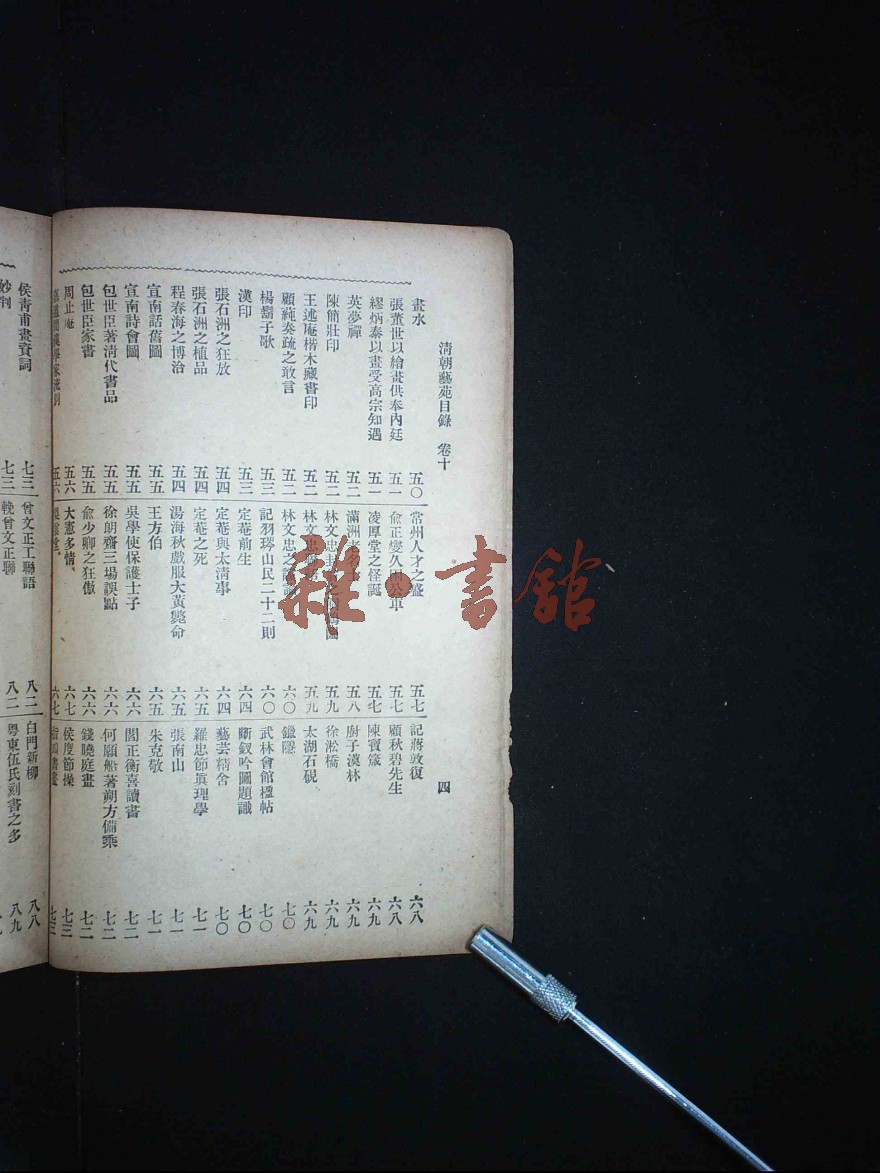 清朝藝苑目錄 卷十
四
畫水 五〇
張萱世以繪畫供奉內廷 五一
繆炳泰以畫受高宗知遇 五一
英夢禪 五一
陳簡壯印 五二
王述庵楷木藏書印 五二
顧蒓奏疏之敢言 五二
楊翿子歌 五三
漢印 五三
張石洲之狂放 五四
張石洲之植品 五四
程春海之博洽 五四
宣南話舊圖 五五
宣南詩會圖 五五
包世臣著清代書品 五五
包世臣家書 五五
周止庵 五六
五六
常州人才之盛 五七
俞正燮久困公車 五七
凌厚堂之怪誕 五七
滿洲老名士 五八
林文忠 五九
林文忠 五九
林文忠之 六〇
記羽琌山民二十二則 六〇
定菴前生 六四
定菴與太清事 六四
定菴之死 六五
湯海秋戲服大黃斃命 六五
王方伯 六五
吳學使保護士子 六六
徐朗齋三場誤點 六六
俞少卿之狂傲 六六
大憲多情 六七
六七
記蔣敦復 六八
顧秋碧先生 六八
陳寶箴 六九
廚子漢林 六九
徐淞橋 六九
太湖石硯 六九
鐵隱 七〇
武林會館楹帖 七〇
斷釵吟圖題識 七〇
藝芸精舍 七〇
羅忠節眞理學 七一
張南山 七一
朱克敬 七一
閻正衡喜讀書 七二
何願船著朔方備乘 七二
錢曉庭畫 七二
侯度節操 七三
七三
侯青甫畫賚詞 七三
妙判 七三
曾文正工聯語 八二
輓曾文正聯 八二
白門新柳 八八
粤東伍氏刻書之多 八九
雜·書舘